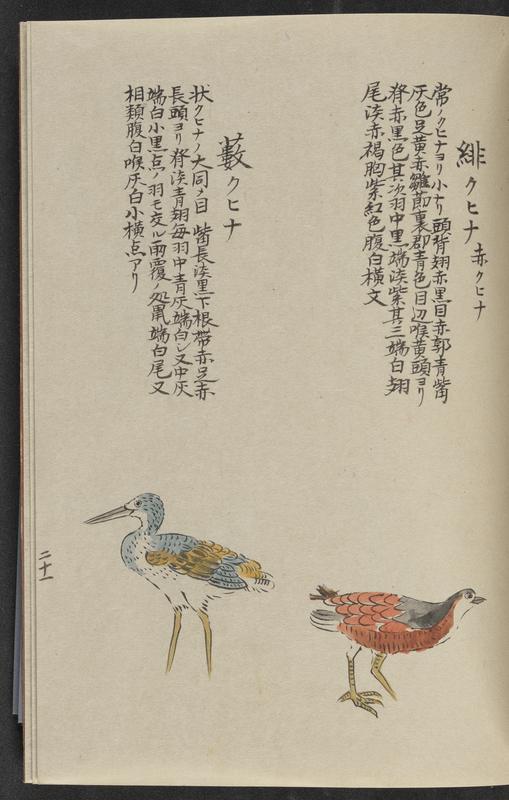 緋クヒナ 赤クヒナ
常ノクヒナヨリ小ナリ 頭背翅赤黒目赤郭青觜
灰色足黄赤雛 裏郡青色目辺喉黄頭ヨリ
脊赤黒色其次羽中黒端淡紫其三端白翅
尾淡赤褐胸紫紅色腹白横文
藪クヒナ
状クヒナノ大同メ目 觜長淡黒下根帯赤足赤
長頭ヨリ脊淡青翅毎羽中青灰端白シ又中灰
端白小黒点ノ羽モ交ル雨覆ノ処黒端白尾又
相類腹白喉灰白小横点アリ
二十一